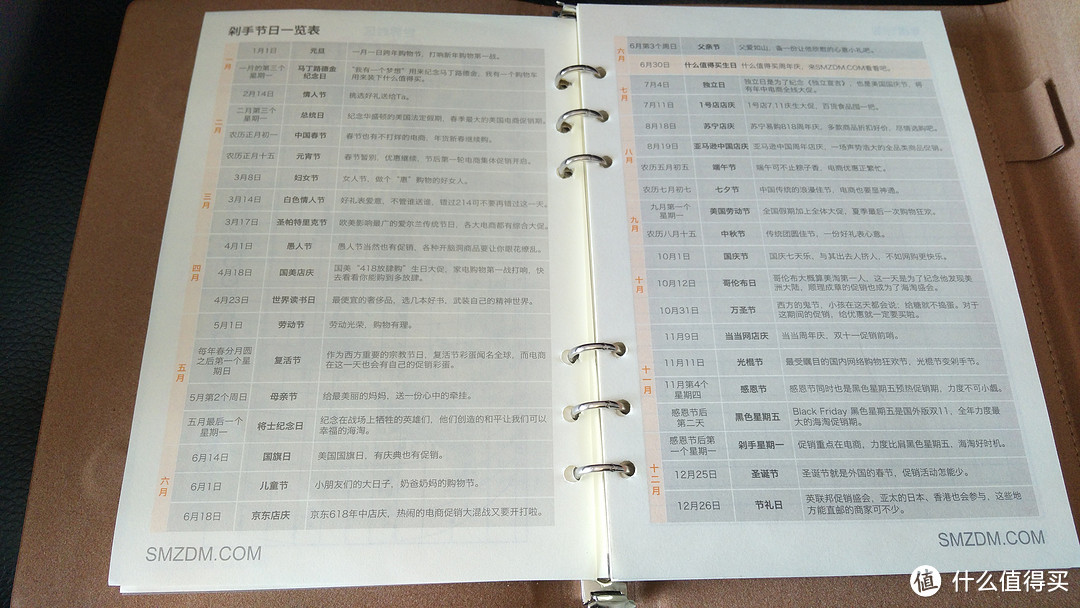 剁手节日一览表
一月
1月1日 元旦 一月一日跨年购物节，打响新年购物第一战。
一月的第三个星期一 马丁路德金纪念日 “我有一个梦想”用来纪念马丁路德金，我有一个购物车用来装下什么值得买。
二月
2月14日 情人节 挑选好礼送给Ta。
二月第三个星期一 总统日 纪念华盛顿的美国法定假期，春季最大的美国电商促销期。
农历正月初一 中国春节 春节也有不打烊的电商，年货新春继续购。
农历正月十五 元宵节 春节暂别，优惠继续，节后第一轮电商集体促销开启。
三月
3月8日 妇女节 女人节，做个“惠”购物的好女人。
3月14日 白色情人节 好礼表爱意，不管谁送谁，错过214可不要再错过这一天。
3月17日 圣帕特里克节 欧美影响最广的爱尔兰传统节日，各大电商都有综合大促。
四月
4月1日 愚人节 愚人节当然也有促销，各种开脑洞商品要让你眼花缭乱。
4月18日 国美店庆 国美“418放肆购”生日大促，家电购物第一战打响，快去看看你能购到多放肆。
4月23日 世界读书日 最便宜的奢侈品，选几本好书，武装自己的精神世界。
五月
5月1日 劳动节 劳动光荣，购物有理。
每年春分月圆之后第一个星期日 复活节 作为西方重要的宗教节日，复活节彩蛋闻名全球，而电商在这一天也会有自己的促销彩蛋。
5月第2个周日 母亲节 给最美丽的妈妈，送一份心中的牵挂。
五月最后一个星期一 将士纪念日 纪念在战场上牺牲的英雄们，他们创造的和平让我们可以幸福的海淘。
六月
6月14日 国旗日 美国国旗日，有庆典也有促销。
6月1日 儿童节 小朋友们的大日子，奶爸奶妈的购物节。
6月18日 京东店庆 京东618年中店庆，热闹的电商促销大混战又要开打啦。
SMZDM.COM
六月
6月第3个周日 父亲节 父爱如山，备一份让他欣慰的心意小礼吧。
6月30日 什么值得买生日 什么值得买周年庆，来SMZDM.COM看看吧。
七月
7月4日 独立日 独立日是为了纪念《独立宣言》，也是美国国庆节，将有年中电商全线大促。
7月11日 1号店店庆 1号店7.11庆生大促，百货食品囤一把。
八月
8月18日 苏宁店庆 苏宁易购818周年庆，多款商品折扣好价，尽情选购吧。
8月19日 亚马逊中国店庆 亚马逊中国周年店庆，一场声势浩大的全品类商品促销。
农历五月初五 端午节 端午可不止粽子香，电商优惠正繁忙。
农历七月初七 七夕节 中国传统的浪漫佳节，电商也要显神通。
九月
九月第一个星期一 美国劳动节 全国假期加上全体大促，夏季最后一次购物狂欢。
农历八月十五 中秋节 传统团圆佳节，一份好礼表心意。
十月
10月1日 国庆节 国庆七天乐，与其出去人挤人，不如网购更快乐。
10月12日 哥伦布日 哥伦布大概算美淘第一人，这一天是为了纪念他发现美洲大陆，顺理成章的促销也成为了海淘盛会。
10月31日 万圣节 西方的鬼节，小孩在这天都会说：给糖就不捣蛋。对于这期间的促销，给优惠就一定要买啦。
十一月
11月9日 当当网店庆 当当周年庆，双十一促销前哨。
11月11日 光棍节 最受瞩目的国内网络购物狂欢节，光棍节变剁手节。
11月第4个星期四 感恩节 感恩节同时也是黑色星期五预热促销期，力度不可小觑。
感恩节后第二天 黑色星期五 Black Friday 黑色星期五是国外版双11，全年力度最大的海淘促销期。
感恩节后第一个星期一 剁手星期一 促销重点在电商，力度比肩黑色星期五，海淘好时机。
十二月
12月25日 圣诞节 圣诞节就是外国的春节，促销活动怎能少。
12月26日 节礼日 英联邦促销盛会，亚太的日本、香港也会参与，这些地方能直邮的商家可不少。
SMZDM.COM
值 什么值得买